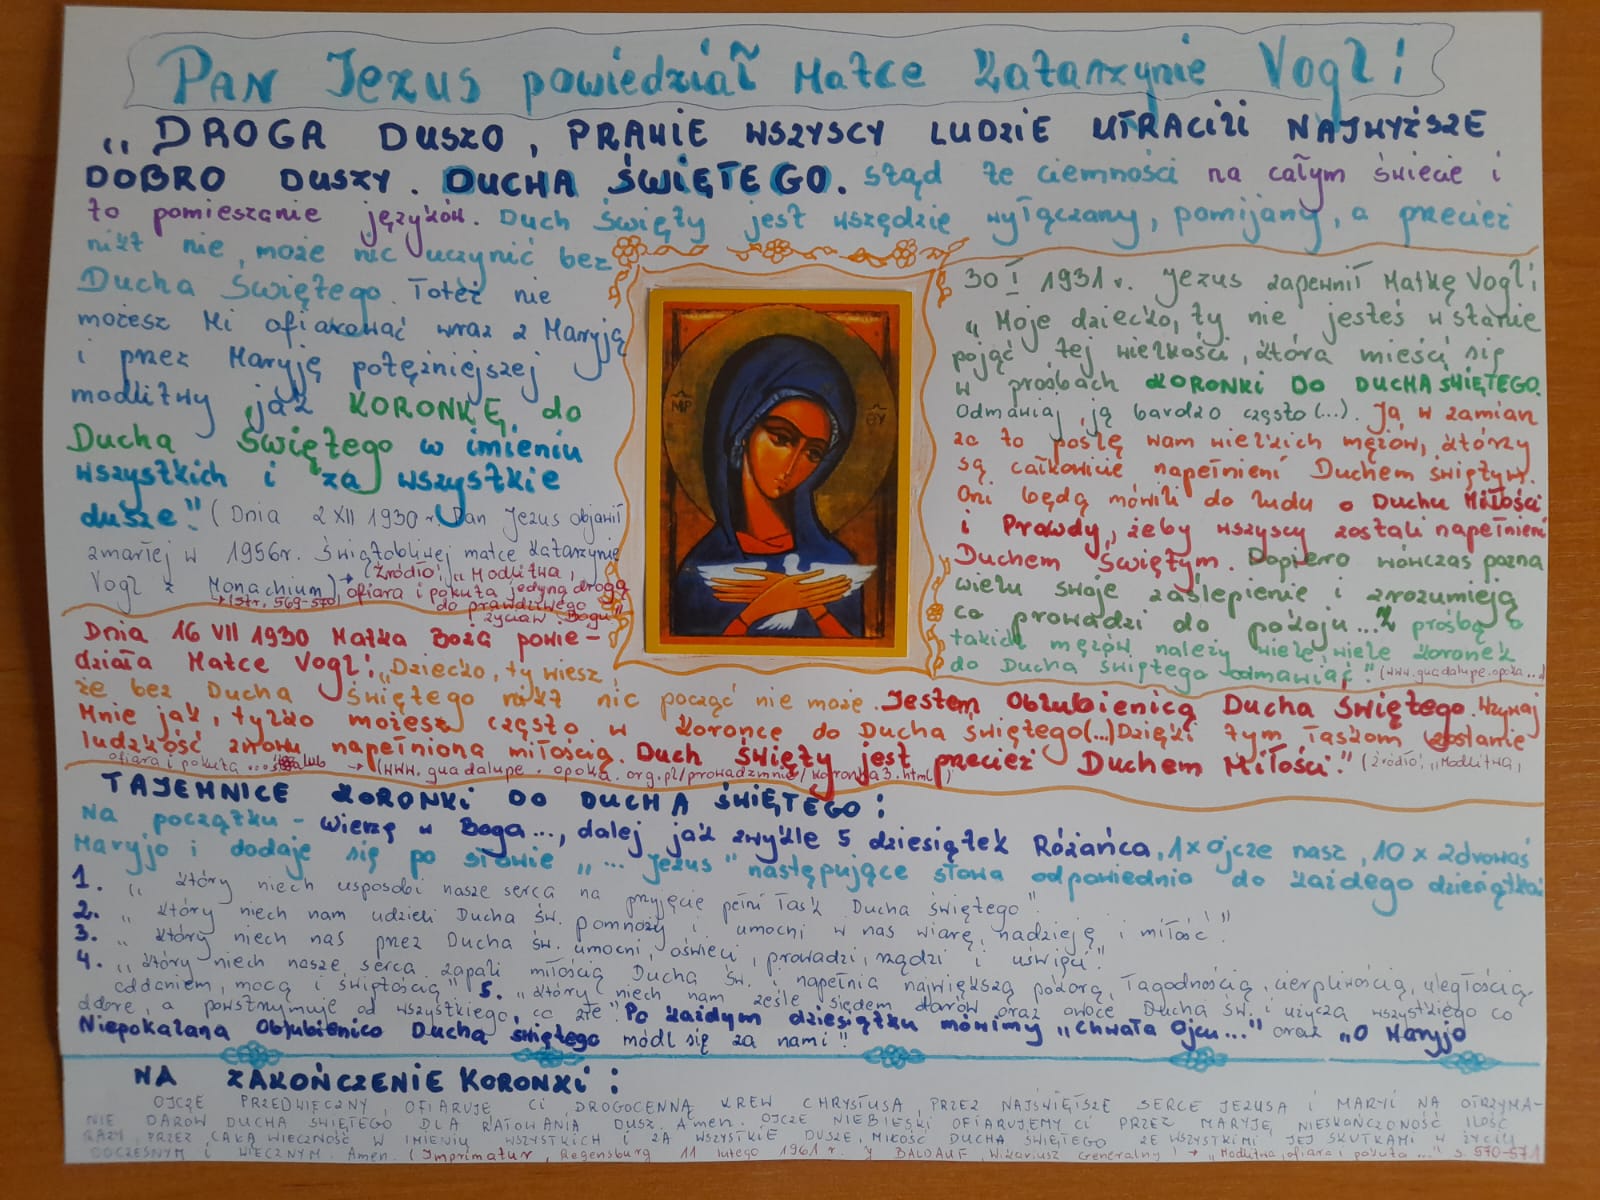 Pan Jezus powiedział Matce Katarzynie Vogl:
„DROGA DUSZO, PRAWIE WSZYSCY LUDZIE UTRACILI NAJWYŻSZE
DOBRO DUSZY. DUCHA ŚWIĘTEGO. Stąd te ciemności na całym świecie i
to pomieszanie języków. Duch Święty jest wszędzie wyłączany, pomijany, a przecież
nikt nie może nic uczynić bez
Ducha Świętego. Toteż nie
możesz Mi ofiarować wraz z Maryją
i przez Maryję potężniejszej
modlitwy jak KORONKĘ do
Ducha Świętego w imieniu
wszystkich i za wszystkie
dusze." (Dnia 2 XII 1930 r. Pan Jezus objawił
zmarłej w 1956r. świątobliwej matce Katarzynie
Vogl z Monachium) → (Źródło: „Modlitwa,
ofiara i pokuta jedyną drogą
do prawdziwego
życia w Bogu"
→ (str. 569-570)
MP ΘY
30 I 1931 r. Jezus zapewnił Matkę Vogl:
„Moje dziecko, ty nie jesteś w stanie
pojąć tej wielkości, która mieści się
w prośbach KORONKI DO DUCHA ŚWIĘTEGO.
Odmawiaj ją bardzo często (...). Ja w zamian
za to poślę wam wielkich mężów, którzy
są całkowicie napełnieni Duchem Świętym.
Oni będą mówili do ludu o Duchu Miłości
i Prawdy, żeby wszyscy zostali napełnieni
Duchem Świętym. Dopiero wówczas pozna
wielu swoje zaślepienie i zrozumieją
co prowadzi do pokoju... Z prośbą o
takich mężów należy wiele, wiele koronek
do Ducha Świętego odmawiać." (www.guadalupe.opoka...)
Dnia 16 VII 1930 Matka Boża powie-
działa Matce Vogl: „Dziecko, ty wiesz,
że bez Ducha Świętego nikt nic począć nie może. Jestem Oblubienicą Ducha Świętego. Wzywaj
Mnie jak, tylko możesz często w koronce do Ducha Świętego (...) Dzięki tym łaskom zostanie
ludzkość znowu napełniona miłością. Duch Święty jest przecież Duchem Miłości." (źródło: „Modlitwa,
ofiara i pokuta... lub → (www.guadalupe.opoka.org.pl/prowadzmnie/koronka3.html)
TAJEMNICE KORONKI DO DUCHA ŚWIĘTEGO:
Na początku - Wierzę w Boga..., dalej jak zwykle 5 dziesiątek Różańca, 1x Ojcze nasz, 10 x Zdrowaś
Maryjo i dodaje się po słowie „... Jezus" następujące słowa odpowiednio do każdego dziesiątka:
1. „który niech usposobi nasze serca na przyjęcie pełni łask Ducha Świętego".
2. „który niech nam udzieli Ducha Św. pomnoży i umocni w nas wiarę, nadzieję i miłość".
3. „który niech nas przez Ducha Św. umocni, oświeci, prowadzi, rządzi i uświęci".
4. „który niech nasze serca zapali miłością Ducha Św. i napełnia największą pokorą, łagodnością, cierpliwością, uległością,
oddaniem, mocą i świętością" 5. „który niech nam ześle siedem darów oraz owoce Ducha Św. i użycza wszystkiego co
dobre, a powstrzymuje od wszystkiego, co złe". Po każdym dziesiątku mówimy „Chwała Ojcu..." oraz „O Maryjo
Niepokalana Oblubienico Ducha Świętego módl się za nami".
NA ZAKOŃCZENIE KORONKI:
OJCZE PRZEDWIECZNY, OFIARUJĘ CI DROGOCENNĄ KREW CHRYSTUSA, PRZEZ NAJŚWIĘTSZE SERCE JEZUSA I MARYI NA OTRZYMA-
NIE DARÓW DUCHA ŚWIĘTEGO DLA RATOWANIA DUSZ. Amen. OJCZE NIEBIESKI OFIARUJEMY CI PRZEZ MARYJĘ NIESKOŃCZONOŚĆ ILOŚĆ
RAZY, PRZEZ CAŁĄ WIECZNOŚĆ W IMIENIU WSZYSTKICH I ZA WSZYSTKIE DUSZE, MIŁOŚĆ DUCHA ŚWIĘTEGO ZE WSZYSTKIMI JEJ SKUTKAMI W ŻYCIU
DOCZESNYM I WIECZNYM. Amen. (Imprimatur, Regensburg 11 lutego 1961 r. BALDAUF, Wikariusz Generalny) → „Modlitwa, ofiara i pokuta..." s. 570-571